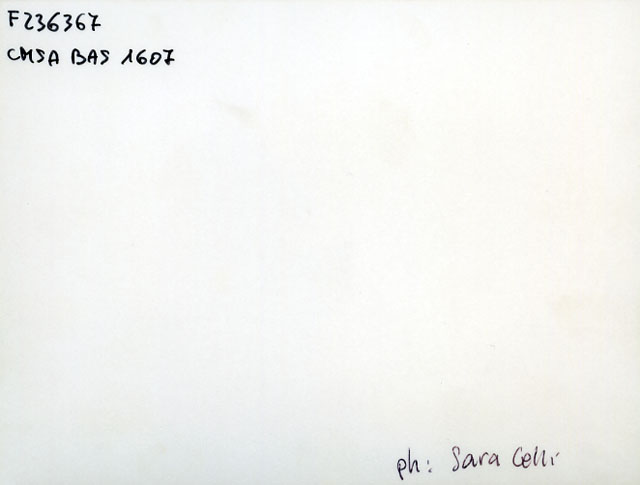 F236367
CMSA BAS 1607
ph: Sara Celli